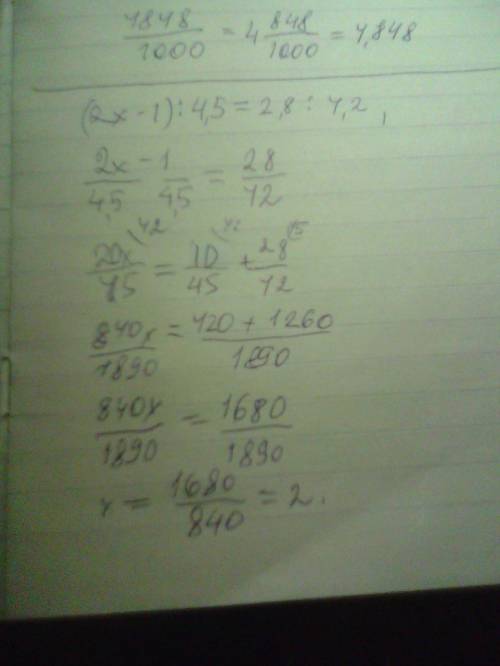 4848/1000 = 4 848/1000 = 4,848
(2x - 1) : 4,5 = 2,8 : 4,2,
2x/4,5 - 1/4,5 = 28/42
20x/45 \42 = 10/45 \42 + 28/42 \45
840x/1890 = 420 + 1260/1890
840x/1890 = 1680/1890
x = 1680/840 = 2.